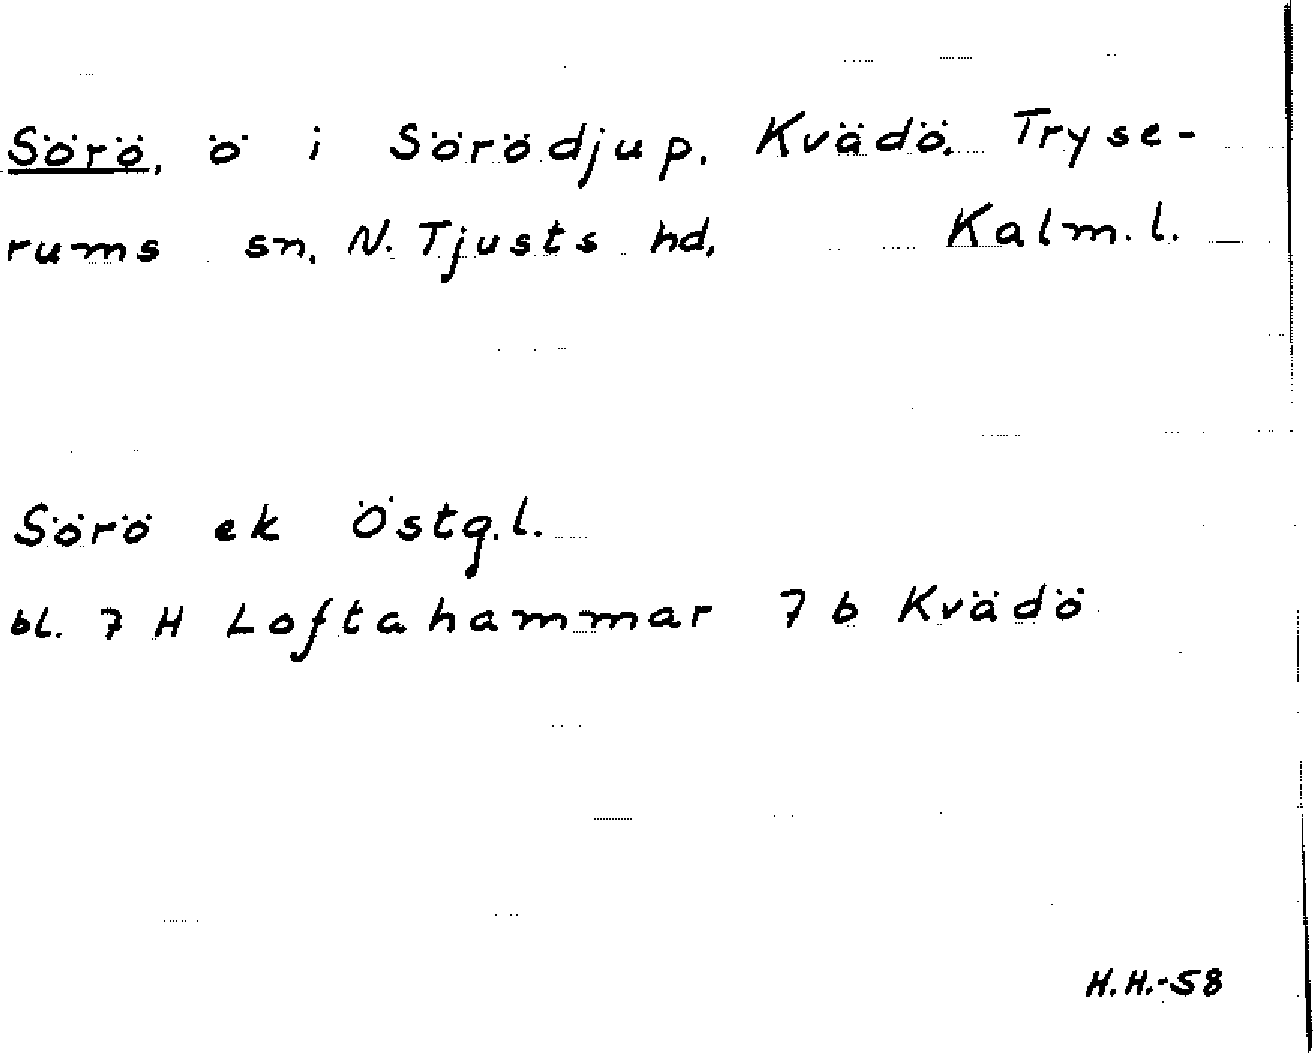 Sörö, ö i Sörödjup, Kvädö, Tryse-
rums sn. N. Tjusts hd. Kalm.l.
Sörö ek Östg.l.
bl. 7 H Loftahammar 7 b Kvädö
H.H.-58